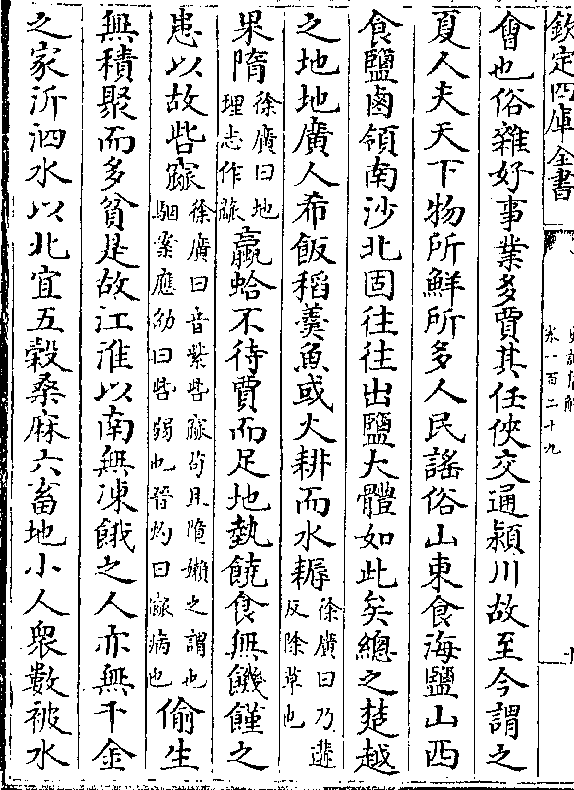 欽定四庫全書
卷一百二十九
會也俗雜好事業多賈其任俠交通潁川故至今謂之
夏人夫天下物所鮮所多人民謠俗山東食海鹽山西
食鹽鹵領南沙北固往往出鹽大體如此矣總之楚越
之地地廣人希飯稻羹魚或火耕而水耨徐廣曰乃遘反除草也
果隋徐廣曰地理志作蓏蠃蛤不待賈而足地埶饒食無饑饉之
患以故呰窳徐廣曰音紫呰窳茍且隋嬾之謂也駰案應劭曰呰弱也晉灼曰窳病也偷生
無積聚而多貧是故江淮以南無凍餓之人亦無千金
之家沂泗水以北宜五穀桑麻六畜地小人衆數被水